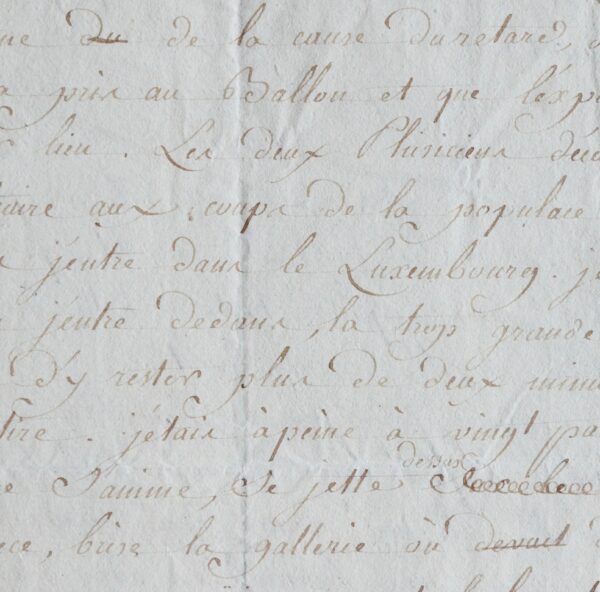 ne du de la cause du retard,
pris au Ballon et que l'éxpo
lieu. Les deux Phisiciens
taire aux coups de la populace
j'entre dans le Luxembourg. je
j'entre dedans, la trop grande
d'y rester plus de deux minu
tire. j'étais àpeine à vingt pa
e s'anime, se jette dessus
ce, brise la gallerie où devait